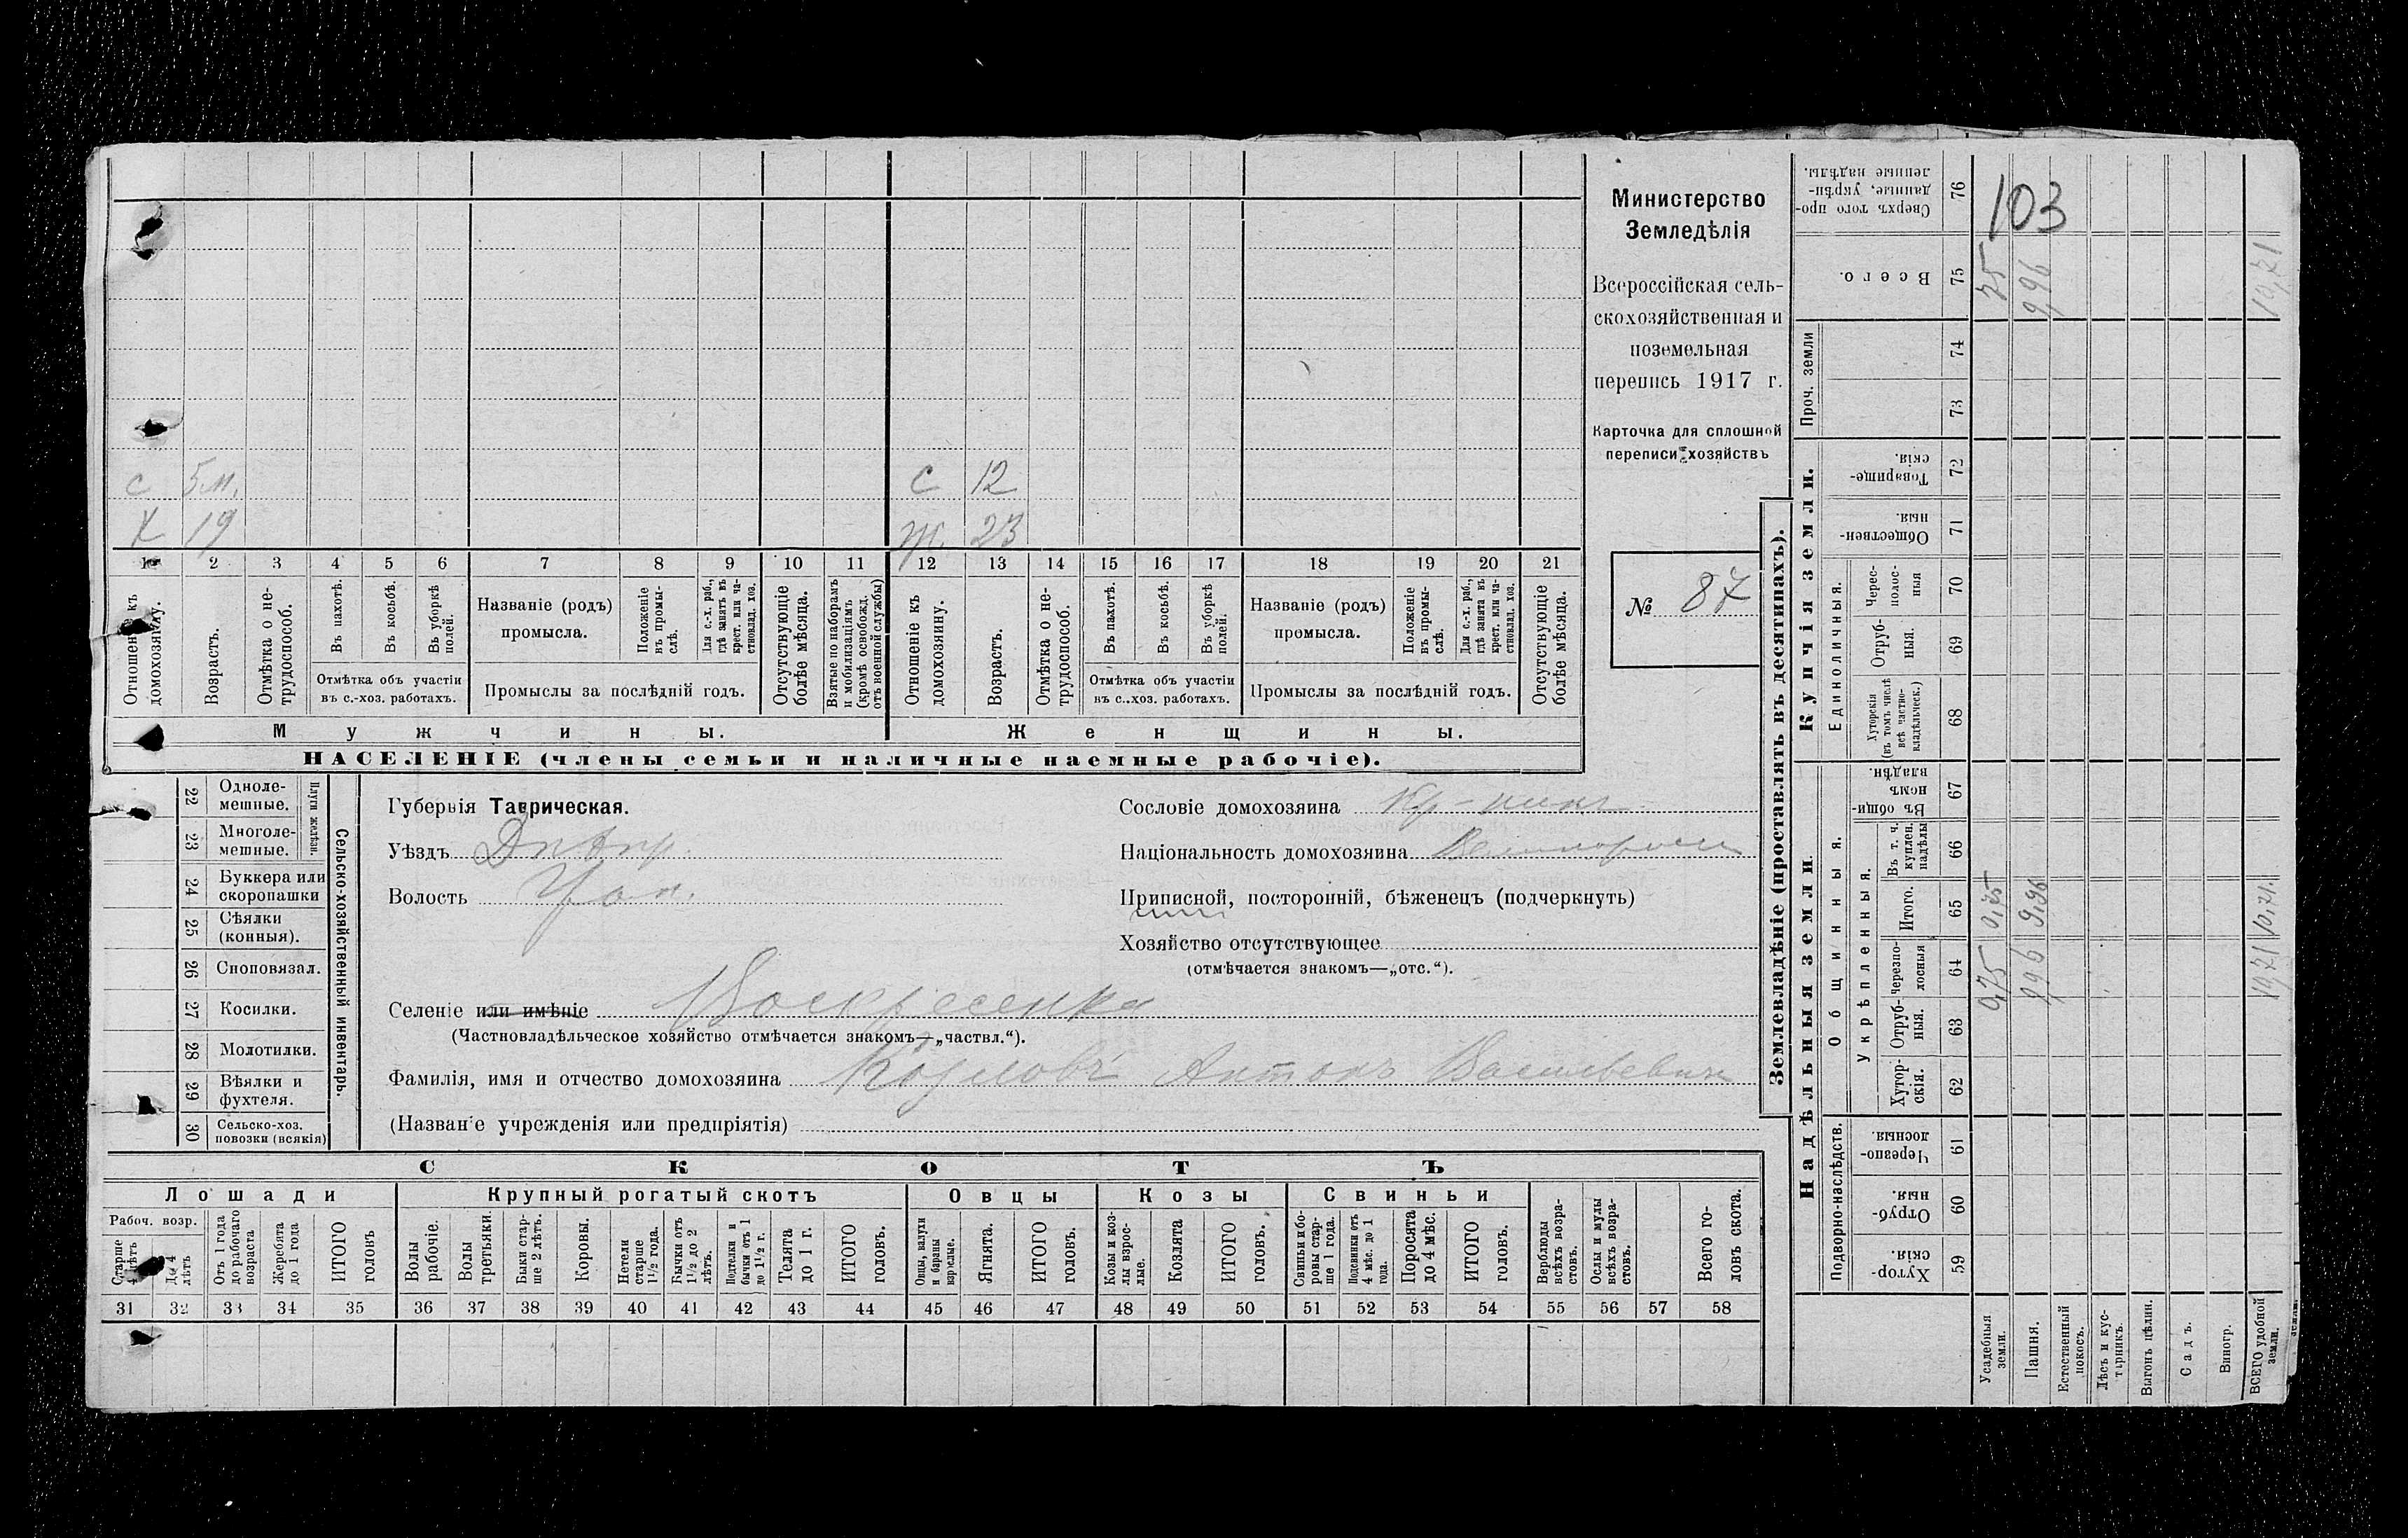 Министерство
Земледѣлія
Всероссійская сель-
скохозяйственная и
поземельная
перепись 1917 г.
Карточка для сплошной
переписи хозяйствъ
№ 87
С 5 м. С 12
Х 19 Ж. 23
1 2 3 4 5 6 7 8 9 10 11 12 13 14 15 16 17 18 19 20 21
Отношеніе къ домохозяину.
Возрастъ.
Отмѣтка о не-трудоспособ.
Въ пахотѣ.
Въ косьбѣ.
Въ уборкѣ полей.
Отмѣтка объ участіи
въ с.-хоз. работахъ.
Названіе (родъ)
промысла.
Положеніе въ промы-слѣ.
Для с.-х. раб., гдѣ занятъ въ крест. или ча-стновлад. хоз.
Промыслы за послѣдній годъ.
Отсутствующіе болѣе мѣсяца.
Взятые по наборамъ и мобилизаціямъ (кромѣ освобожд. отъ военной службы)
Отношеніе къ домохозяину.
Возрастъ.
Отмѣтка о не-трудоспособ.
Въ пахотѣ.
Въ косьбѣ.
Въ уборкѣ полей.
Отмѣтка объ участіи
въ с.-хоз. работахъ.
Названіе (родъ)
промысла.
Положеніе въ промы-слѣ.
Для с.-х. раб., гдѣ занята въ крест. или ча-стновлад. хоз.
Промыслы за послѣдній годъ.
Отсутствующіе болѣе мѣсяца.
Мужчины. Женщины.
НАСЕЛЕНІЕ (члены семьи и наличные наемные рабочіе).
22 Одноле-мешные.
23 Многоле-мешные.
Плуги желѣзн.
24 Буккера или скоропашки
25 Сѣялки (конныя).
26 Сноповязал.
27 Косилки.
28 Молотилки.
29 Вѣялки и фухтеля.
30 Сельско-хоз. повозки (всякія)
Сельско-хозяйственный инвентарь.
Губернія Таврическая.
Уѣздъ Днѣпр.
Волость Чап.
Селеніе или имѣніе Воскресенка
(Частновладѣльческое хозяйство отмѣчается знакомъ—„частвл.“).
Фамилія, имя и отчество домохозяина Козловъ Антонъ Васильевичъ
(Названіе учрежденія или предпріятія)
Сословіе домохозяина Кр-нинъ
Національность домохозяина Великороссъ
Приписной, посторонній, бѣженецъ (подчеркнуть)
Хозяйство отсутствующее
(отмѣчается знакомъ—„отс.“).
СКОТЪ
Лошади Крупный рогатый скотъ Овцы Козы Свиньи
Рабоч. возр.
Старше 4 лѣтъ
До 4 лѣтъ
Отъ 1 года до рабочаго возраста
Жеребята до 1 года
ИТОГО головъ
Волы рабочіе.
Волы третьяки.
Быки стар-ше 2 лѣтъ.
Коровы.
Нетели старше 1½ года.
Бычки отъ 1½ до 2 лѣтъ.
Подтелки и бычки отъ 1 до 1½ г.
Телята до 1 г.
ИТОГО головъ.
Овцы, валухи и бараны взрослые.
Ягнята.
ИТОГО головъ.
Козы и коз-лы взрос-лые.
Козлята
ИТОГО головъ.
Свиньи и бо-ровы стар-ше 1 года.
Подсвинки отъ 4 мѣс. до 1 года.
Поросята до 4 мѣс.
ИТОГО головъ.
Верблюды всѣхъ возра-стовъ.
Ослы и мулы всѣхъ возра-стовъ.
Всего го-ловъ скота.
31 32 33 34 35 36 37 38 39 40 41 42 43 44 45 46 47 48 49 50 51 52 53 54 55 56 57 58
Землевладѣніе (проставлять въ десятинахъ).
Надѣльныя земли.
Купчія земли.
Проч. земли
Подворно-наслѣдств.
Общинныя.
Укрѣпленныя.
Единоличныя.
59 Хутор-скія.
60 Отруб-ныя.
61 Черезпо-лосныя.
62 Хутор-скія.
63 Отруб-ныя.
64 Черезпо-лосныя
65 Итого.
66 Въ т. ч. куплен. надѣлы
67 Въ общин-номъ владѣн.
68 Хуторскія (въ томъ числѣ всѣ частно-владѣльческ.)
69 Отруб-ныя.
70 Черес-полос-ныя
71 Обществен-ныя.
72 Товарище-скія.
73
74
75 Всего.
76 Сверхъ того про-данные, укрѣп-ленные надѣлы.
103
Усадебныя земли. 0,75 0,75 75
Пашня. 9,96 9,96 9,96
Естественный покосъ.
Лѣсъ и кус-тарникъ.
Выгонъ цѣлин.
Садъ.
Виногр.
ВСЕГО удобной земли. 10,71 10,71. 10,71